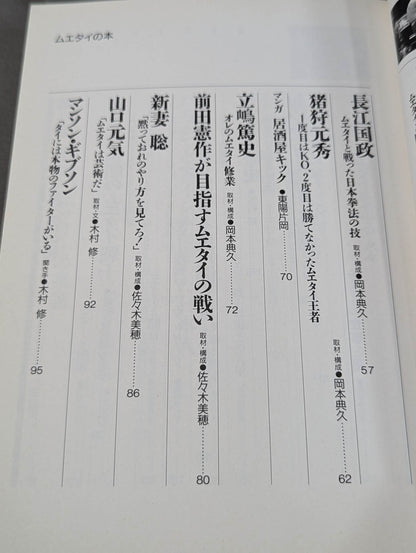 ムエタイの本
長江国政
ムエタイと戦った日本拳法の技 取材・構成●岡本典久……57
猪狩元秀
1度目はKO、2度目は勝てなかったムエタイ王者 取材・構成●岡本典久……62
マンガ 居酒屋キック ●東陽片岡……70
立嶋篤史
オレのムエタイ修業 取材・構成●岡本典久……72
前田憲作が目指すムエタイの戦い 取材・構成●佐々木美穂……80
新妻 聡
「黙っておれのやり方を見てろ!」 取材・構成●佐々木美穂……86
山口元気
「ムエタイは芸術だ」 取材・文●木村 修……92
マンソン・ギブソン
「タイには本物のファイターがいる」 聞き手●木村 修……95